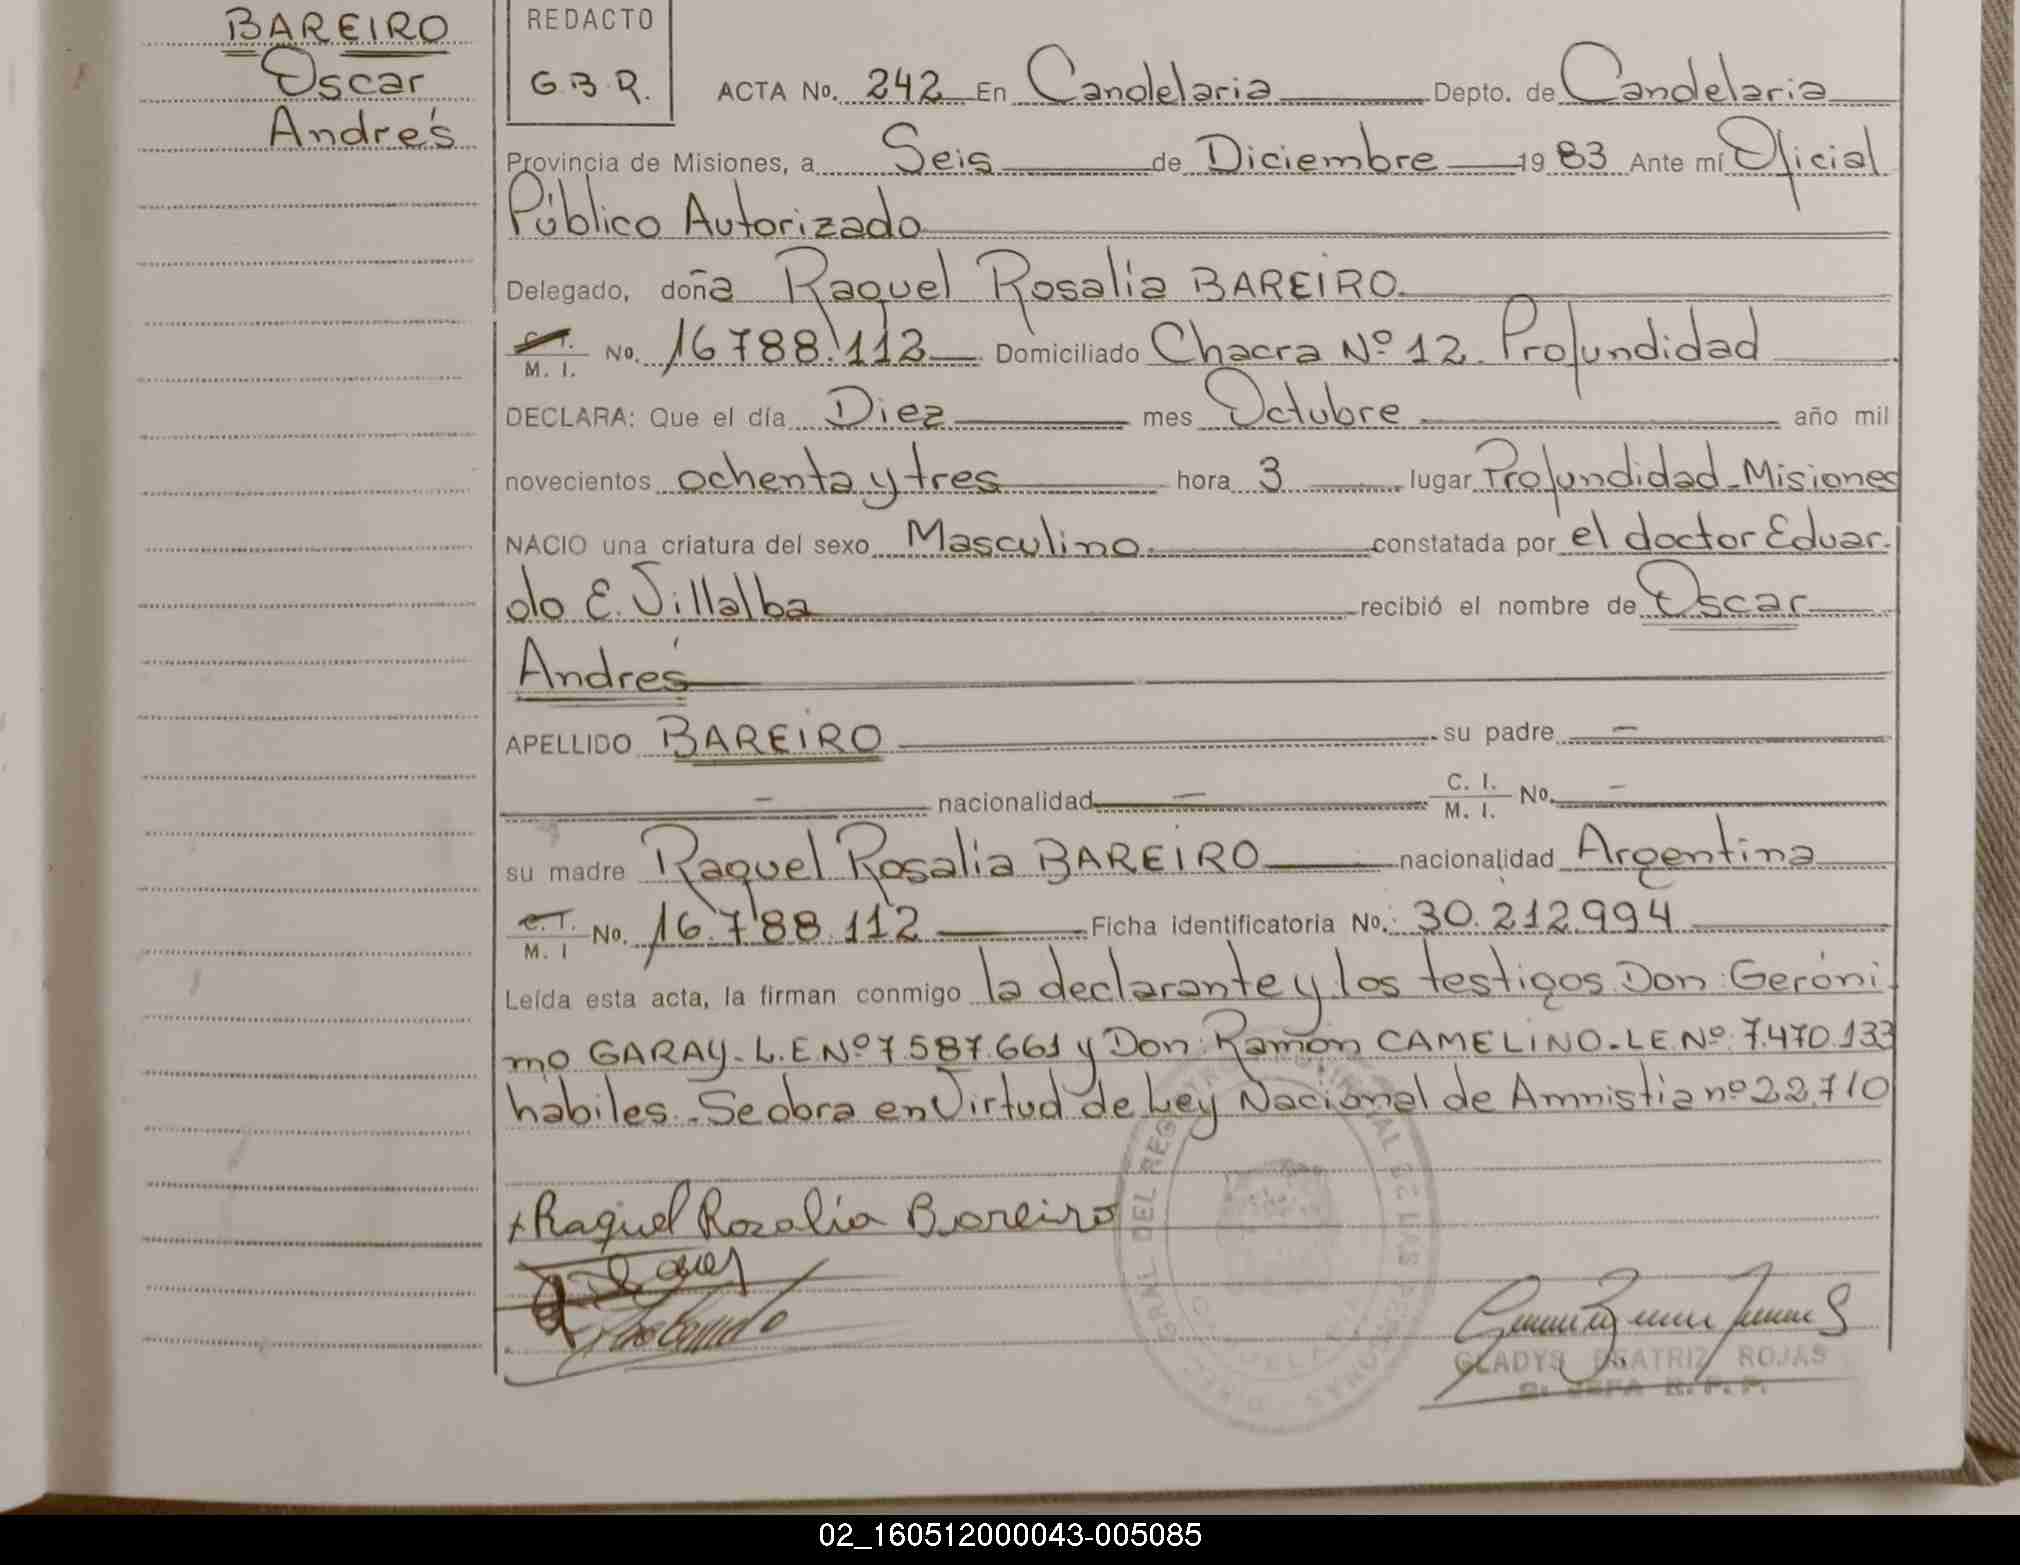 BAREIRO
Oscar
Andrés
REDACTO
G.B.R.
ACTA No. 242 En Candelaria Depto. de Candelaria
Provincia de Misiones, a Seis de Diciembre 1983 Ante mí Oficial
Público Autorizado
Delegado, doña Raquel Rosalia BAREIRO.
C. I. / M. I. No. 16.788.112 Domiciliado Chacra Nº 12. Profundidad
DECLARA: Que el día Diez mes Octubre año mil
novecientos ochenta y tres hora 3 lugar Profundidad-Misiones
NACIO una criatura del sexo Masculino. constatada por el doctor Eduar-
do E. Villalba recibió el nombre de Oscar
Andrés
APELLIDO BAREIRO su padre —
— nacionalidad — C. I. / M. I. No. —
su madre Raquel Rosalia BAREIRO nacionalidad Argentina
C. I. / M. I No. 16.788.112 Ficha identificatoria No. 30.212.994
Leída esta acta, la firman conmigo la declarante y los testigos Don: Geróni-
mo GARAY- L.E Nº 7.587.661 y Don: Ramón CAMELINO- LE. Nº 7.470.133
habiles. Se obra en Virtud de Ley Nacional de Amnistia nº 22.710
Raquel Rozalia Bareiro
GLADYS BEATRIZ ROJAS
02_160512000043-005085